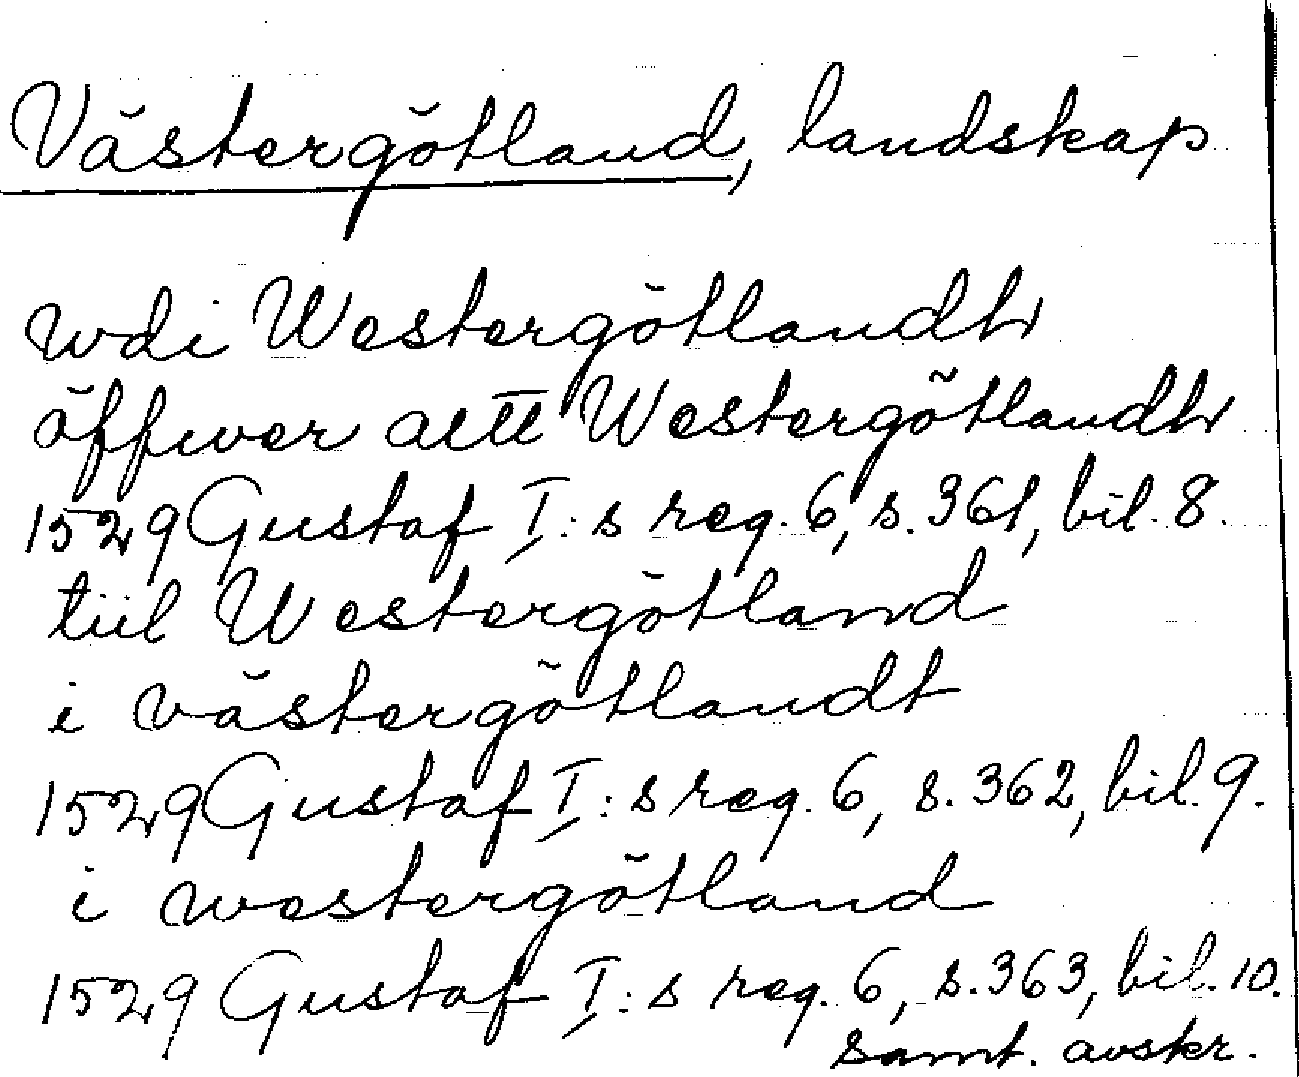 Västergötland, landskap
wdi Westergötlandh
öffwer altt Westergötlandh
1529 Gustaf I:s reg. 6, s. 361, bil. 8.
tiil Westergötland
i västergötlandt
1529 Gustaf I:s reg. 6, s. 362, bil. 9.
i westergötland
1529 Gustaf I:s reg. 6, s. 363, bil. 10.
samt. avskr.